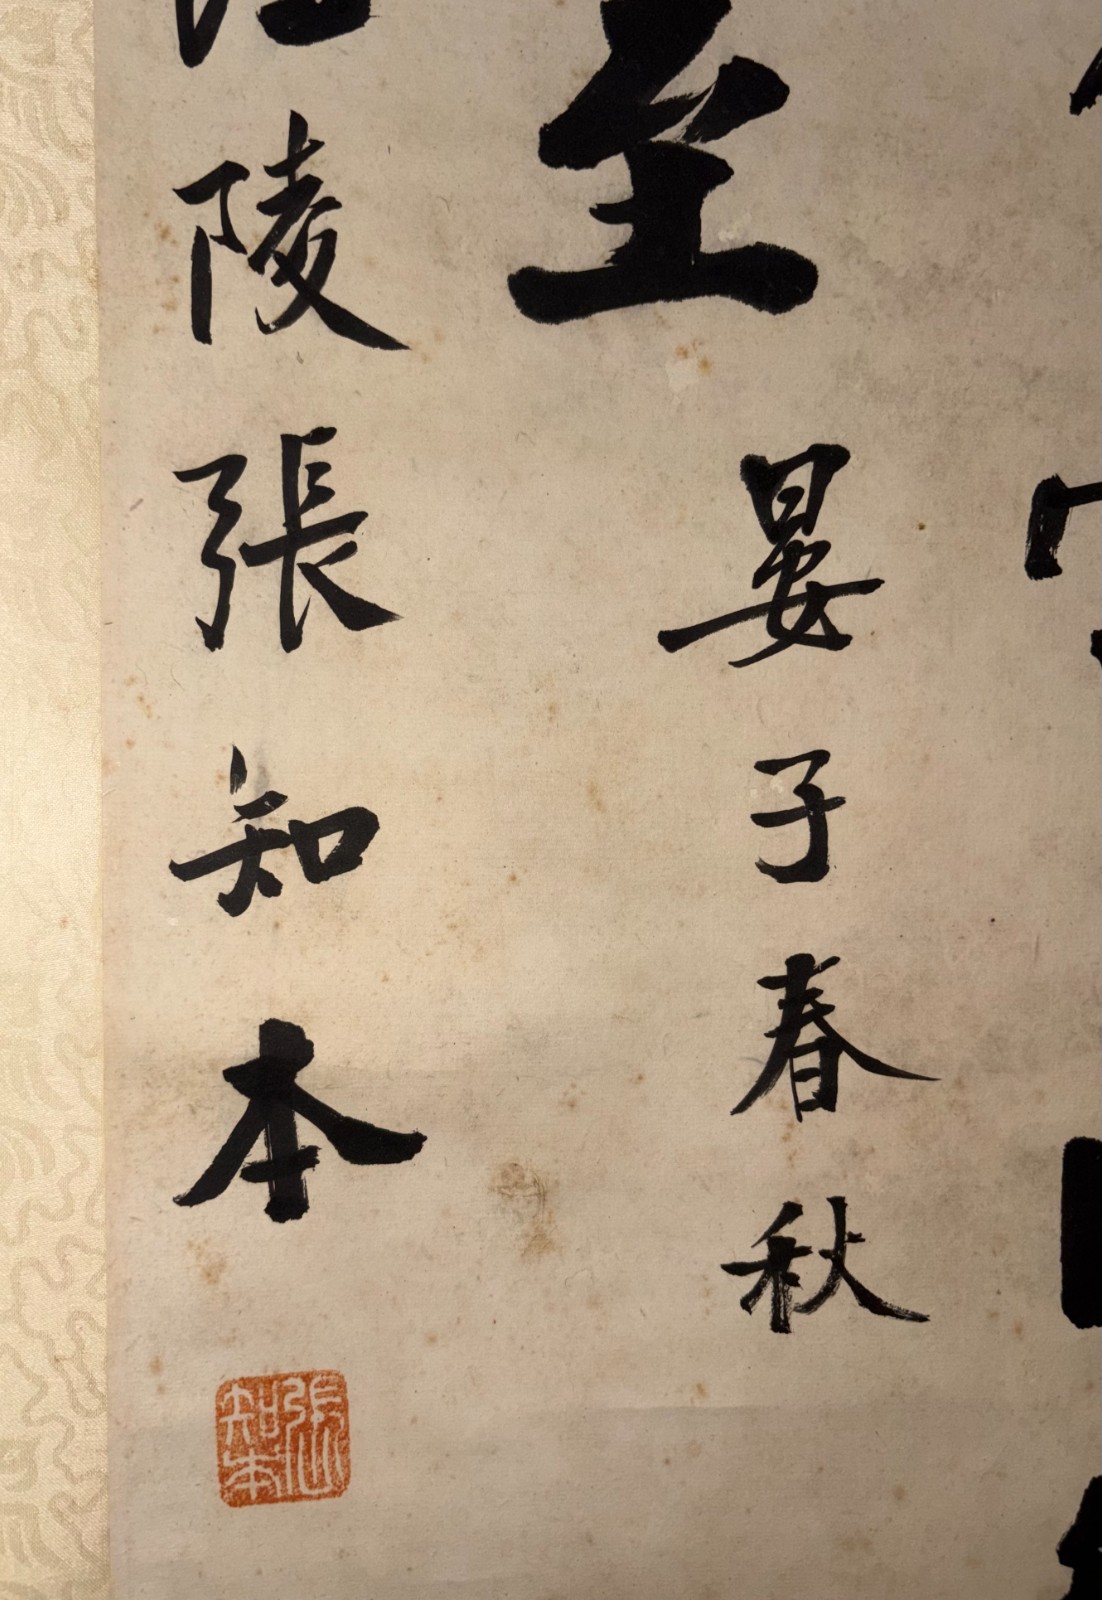 至
晏子春秋
陵張知本
張知本